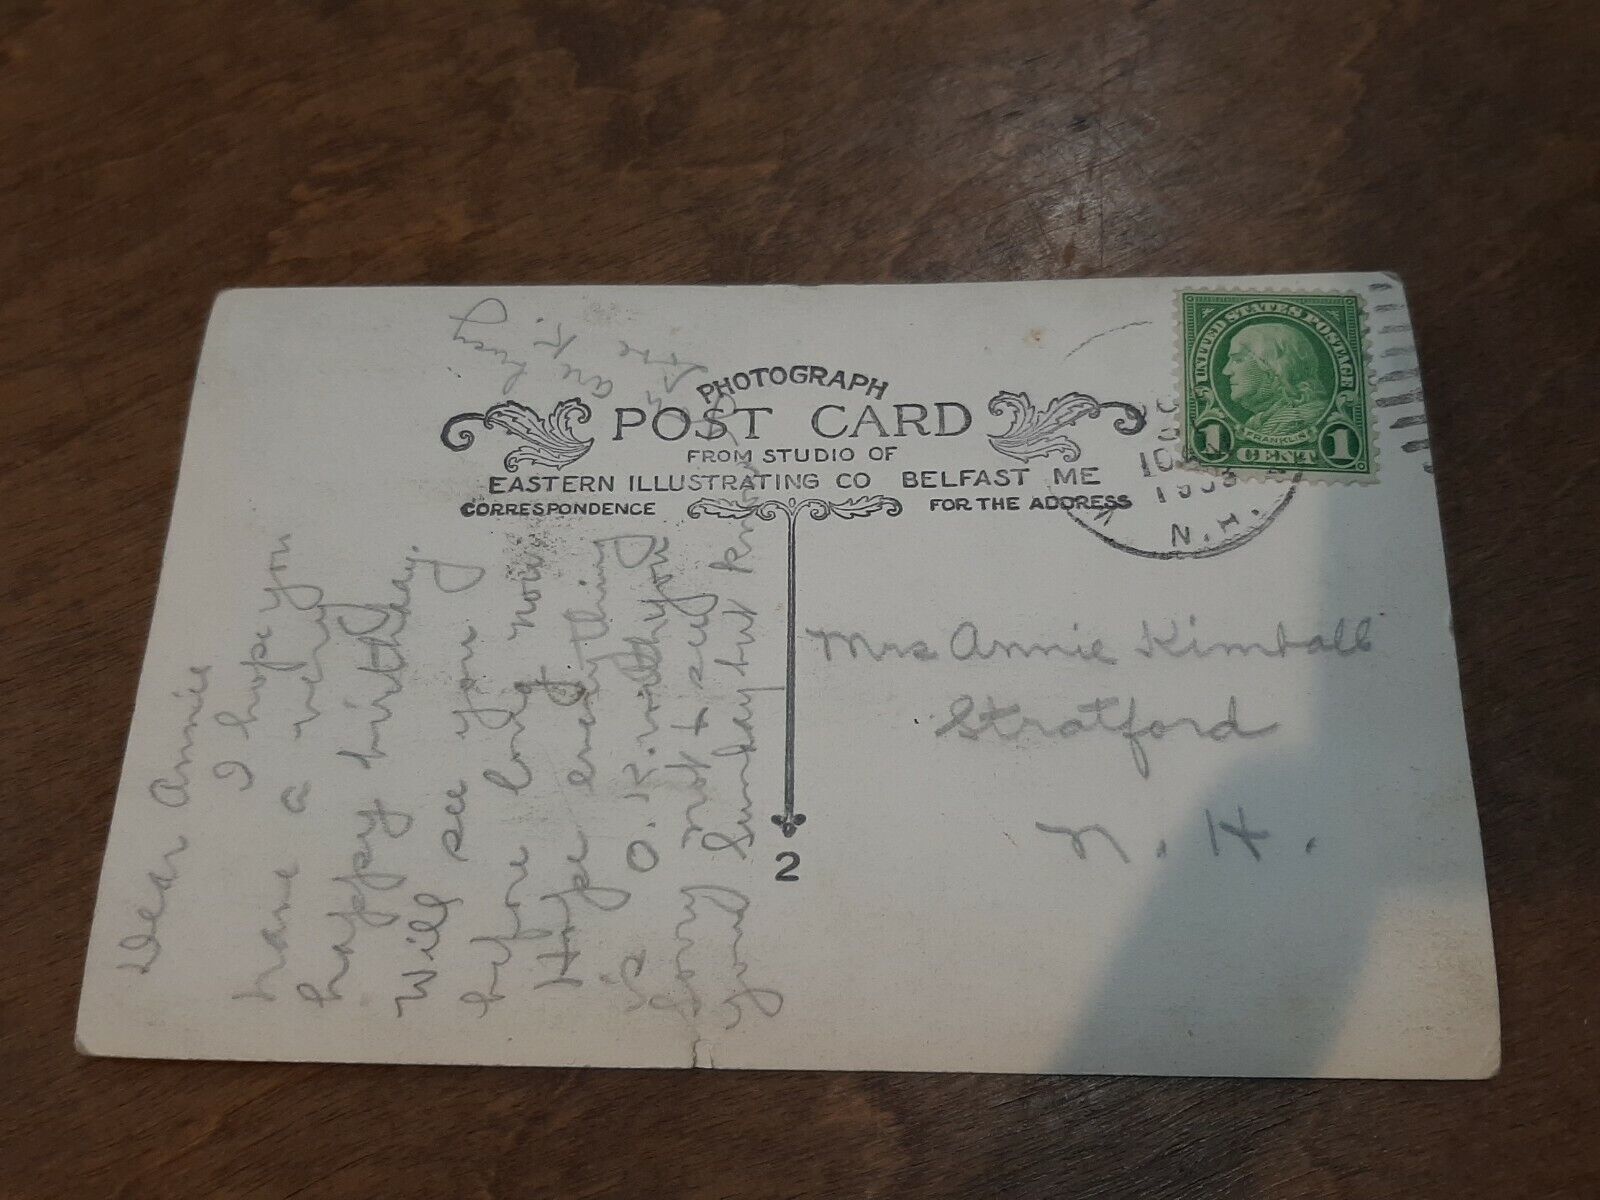 PHOTOGRAPH
POST CARD
FROM STUDIO OF
EASTERN ILLUSTRATING CO BELFAST ME
CORRESPONDENCE
FOR THE ADDRESS
2
UNITED STATES POSTAGE
FRANKLIN
1 CENT 1
10
N.H.
Dear Annie
I hope you
have a very
happy birthday.
Will see you
before long now
Hope everything
is O.K. with you
Sorry not to see
you Sunday but know
you are
O.K.
Mrs Annie Kimball
Stratford
N. H.